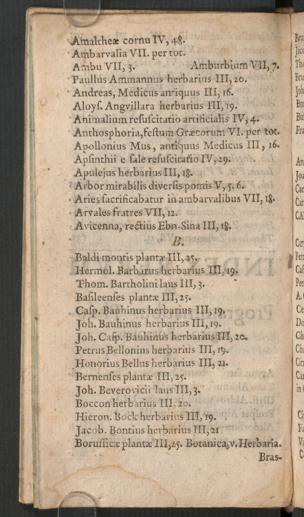 Amaltheæ cornu IV, 48.
Ambarvalia VII. per tot.
Ambu VII, 3. Amburbium VII, 7.
Paullus Ammannus herbarius III, 20.
Andreas, Medicus antiquus III, 16.
Aloyſ. Angvillara herbarius III, 19.
Animalium reſuſcitatio artificialis IV, 4.
Anthoſphoria, feſtum Græcorum VI. per tot.
Apollonius Mus, antiquus Medicus III, 16.
Apſinthii e ſale reſuſcitatio IV, 29.
Apulejus herbarius III, 18.
Arbor mirabilis diverſis pomis V, 5, 6.
Aries ſacrificabatur in ambarvalibus VII, 18.
Arvales fratres VII, 12.
Avicenna, rectius Ebn-Sina III, 18.
B.
Baldi montis plantæ III, 25.
Hermol. Barbarus herbarius III, 19.
Thom. Bartholini laus III, 3.
Baſileenſes plantæ III, 25.
Caſp. Bauhinus herbarius III, 19.
Joh. Bauhinus herbarius III, 19.
Joh. Caſp. Bauhinus herbarius III, 20.
Petrus Bellonius herbarius III, 19.
Honorius Bellus herbarius III, 21.
Bernenſes plantæ III, 25.
Joh. Beverovicii laus III, 3.
Boccon herbarius III. 20.
Hieron. Bock herbarius III, 19.
Jacob. Bontius herbarius III, 21
Boruſſicæ plantæ III, 25. Botanica, v. Herbaria.
Braſ-